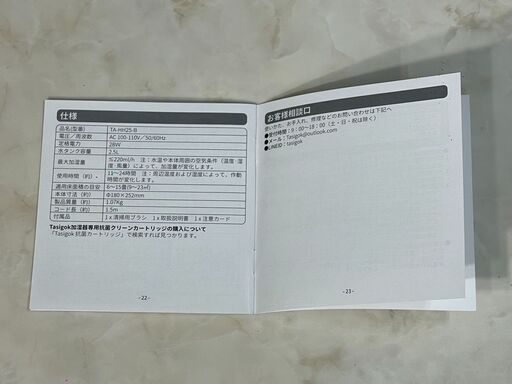 仕様
品名(型番) TA-HH25-B
電圧／周波数 AC 100-110V／50/60Hz
定格電力 28W
水タンク容量 2.5L
最大加湿量 ≦220ml/h 注：水温や本体周囲の空気条件（温度·湿
度·風量）によって、加湿量が変化します。
使用時間（約） 11～24時間 注：周辺温度および湿度によって、作動
時間が変化します。
適用床面積の目安 6～15畳(9～23㎡)
本体寸法（約） Φ180×252mm
製品質量（約） 1.07Kg
コード長（約） 1.5m
付属品 1 x 清掃用ブラシ 1 x 取扱説明書 1 x 注意カード
Tasigok加湿器専用抗菌クリーンカートリッジの購入について
「Tasigok 抗菌カートリッジ」で検索すれば見つかります。
-22-
お客様相談口
使いかた、お手入れ、修理などのお問い合わせは下記へ
●受付時間：9：00～18：00（土・日・祝は除く）
●メール：Tasigok@outlook.com
●LINEID：tasigok
-23-